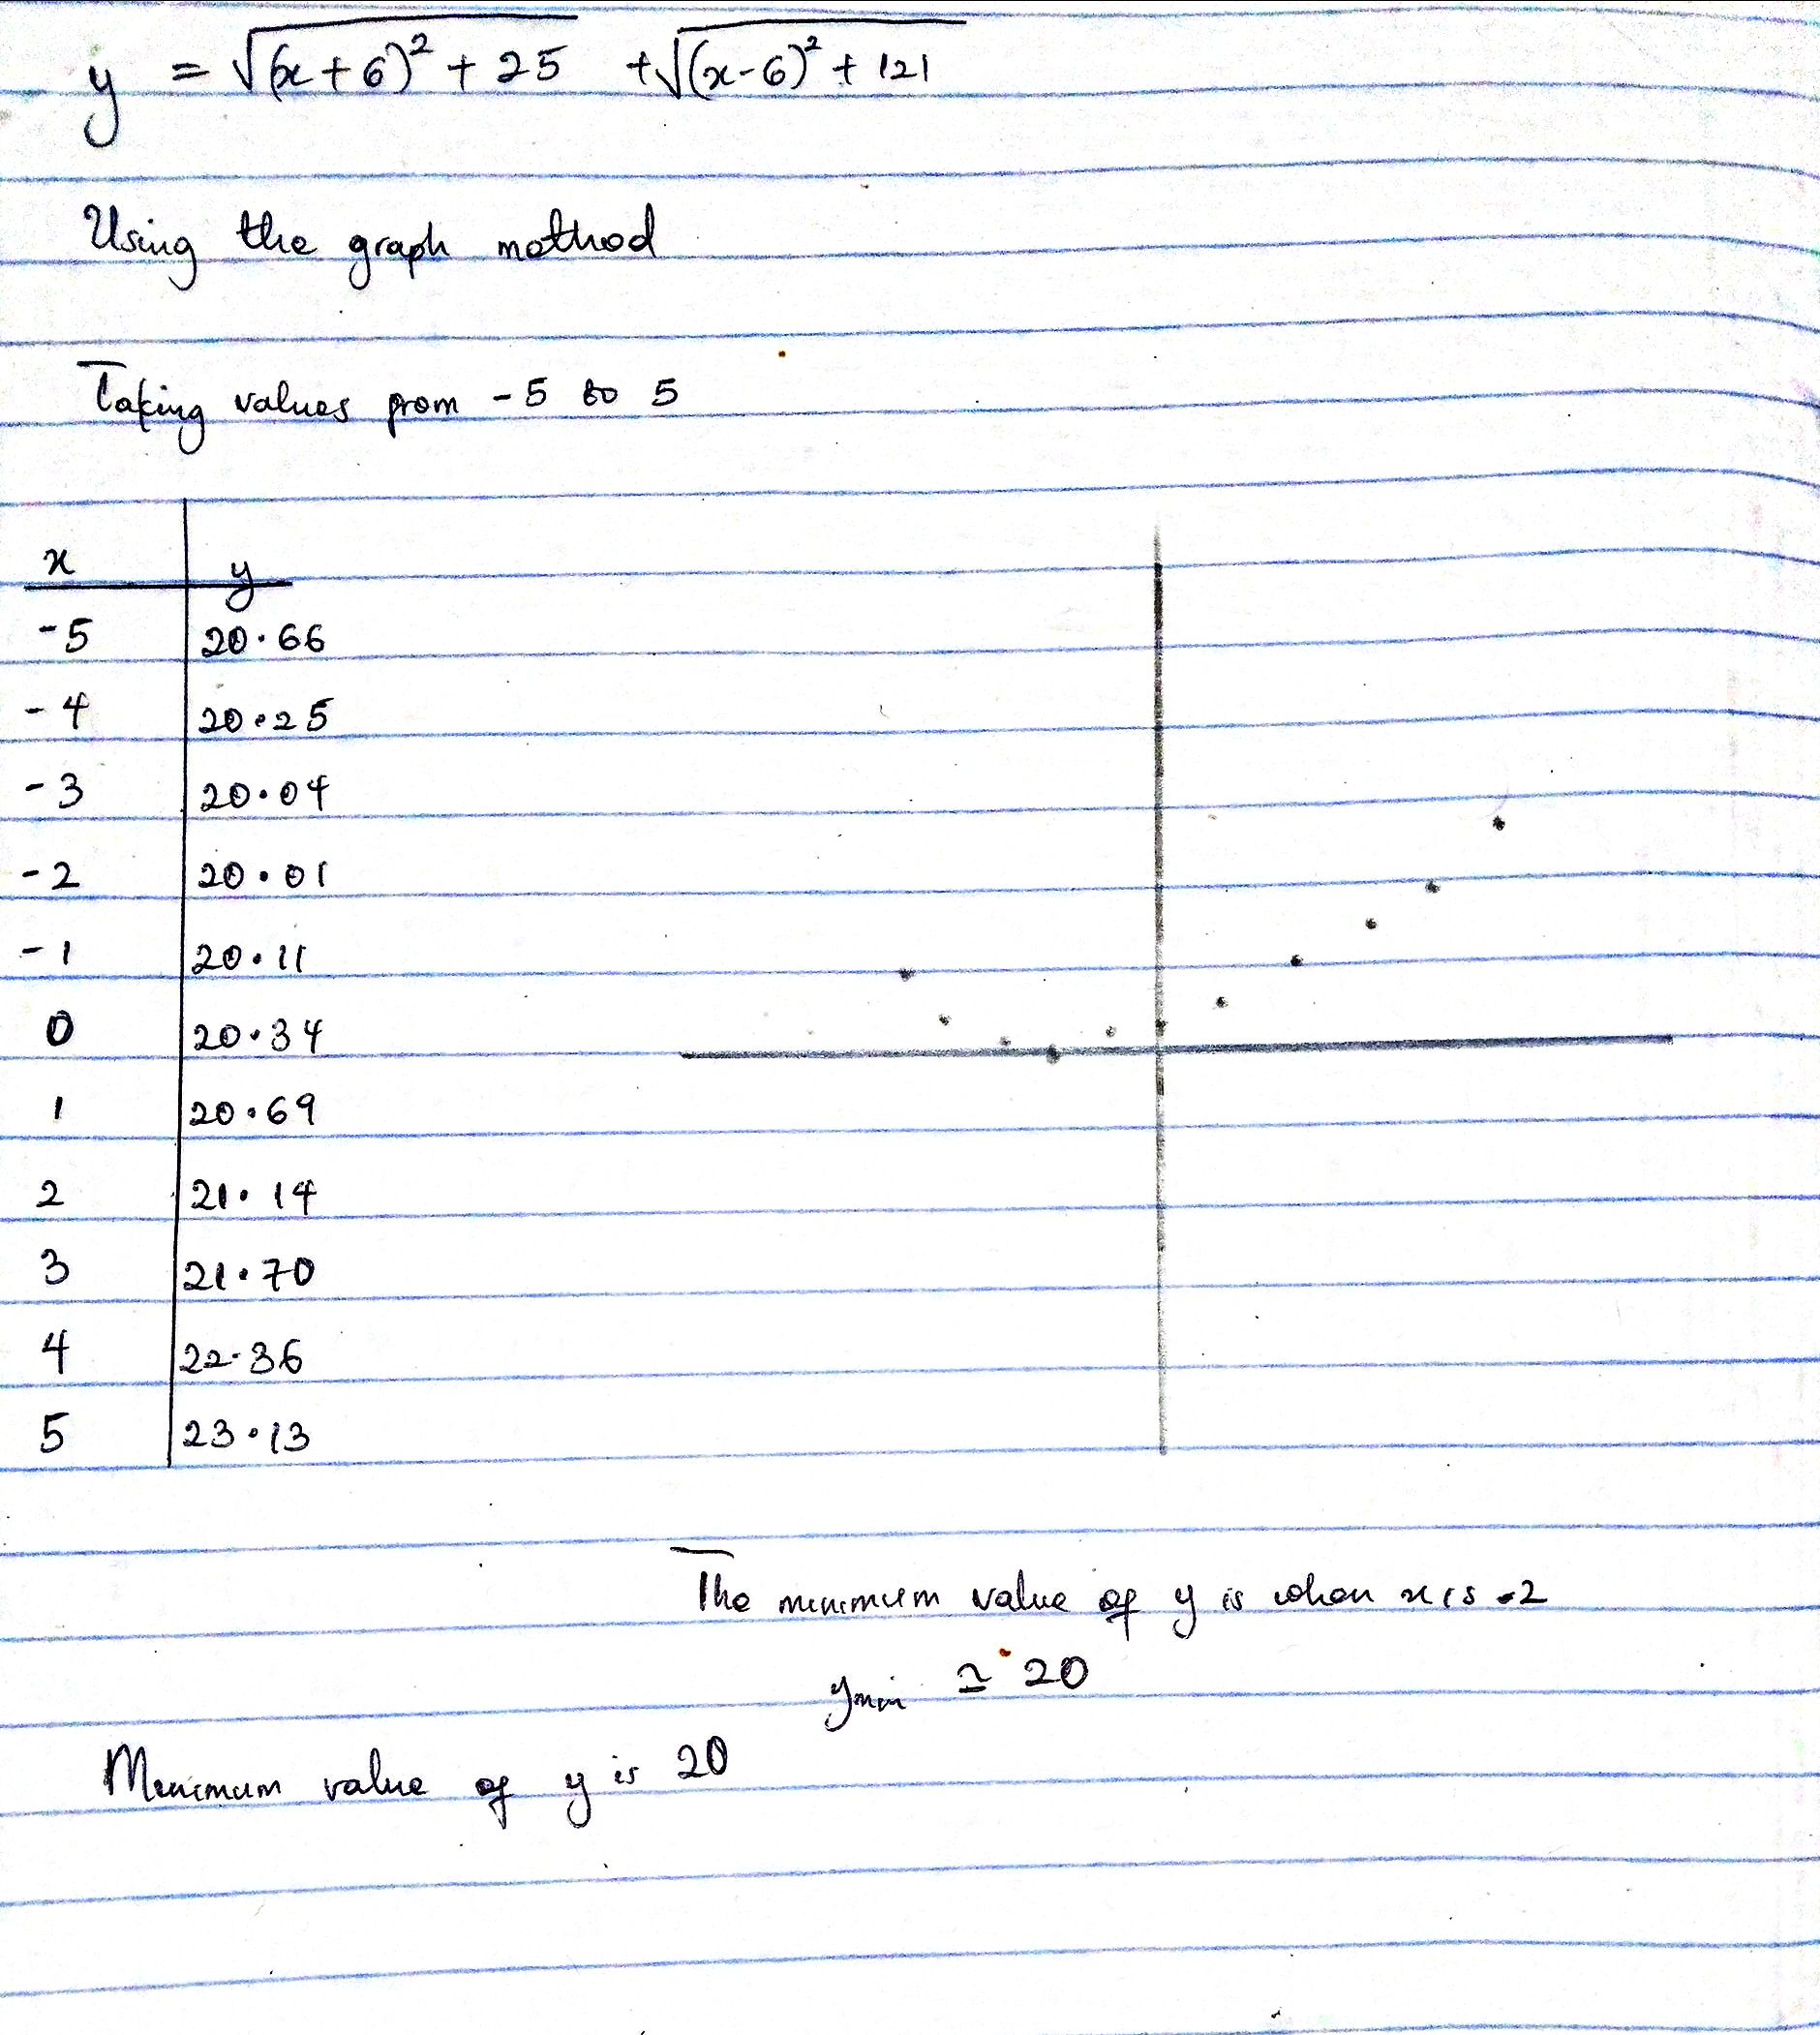 y = √(x+6)² + 25 + √(x-6)² + 121
Using the graph method
Taking values from -5 to 5
x y
-5 20.66
-4 20.25
-3 20.04
-2 20.01
-1 20.11
0 20.34
1 20.69
2 21.14
3 21.70
4 22.36
5 23.13
The minimum value of y is when x is -2
ymin ≃ 20
Minimum value of y is 20